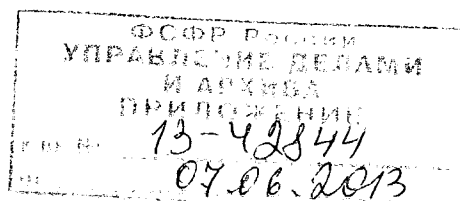 ФСФР России
УПРАВЛЕНИЕ ДЕЛАМИ
И АРХИВА
ПРИЛОЖЕНИЕ
к вх. № 13-42844
07.06.2013